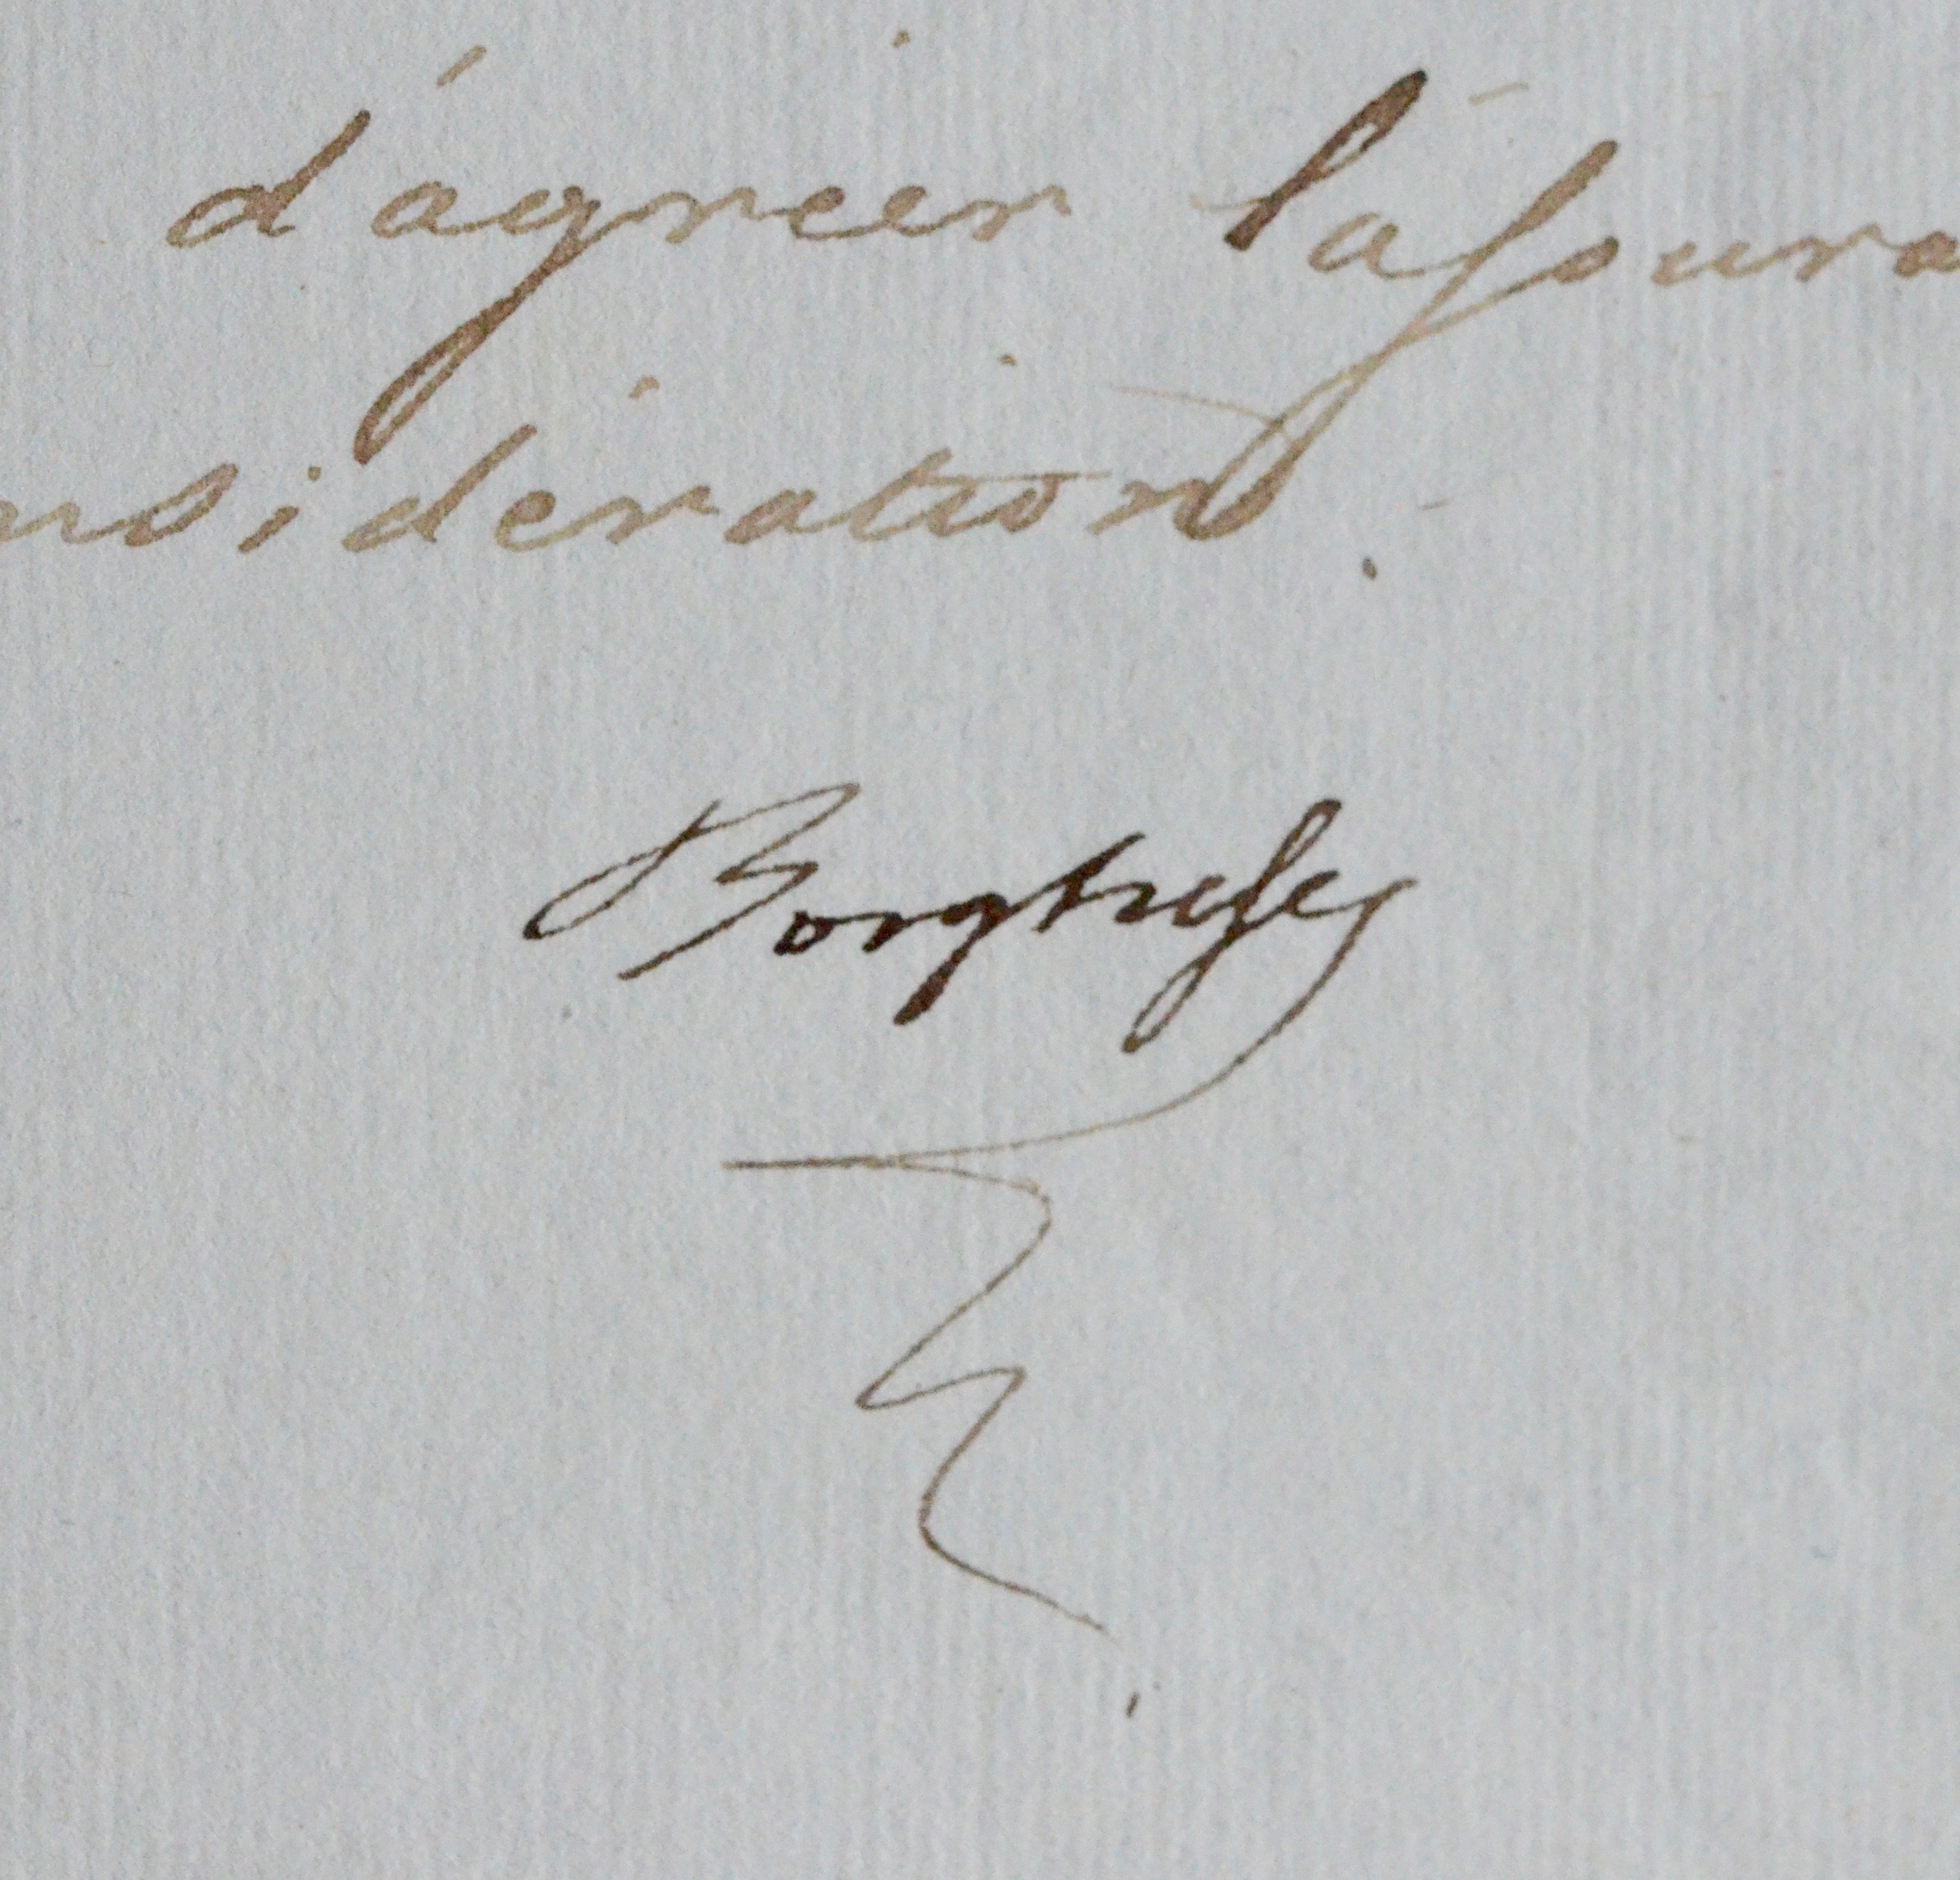 d'agréer l'assura
nsidération.
Borghese